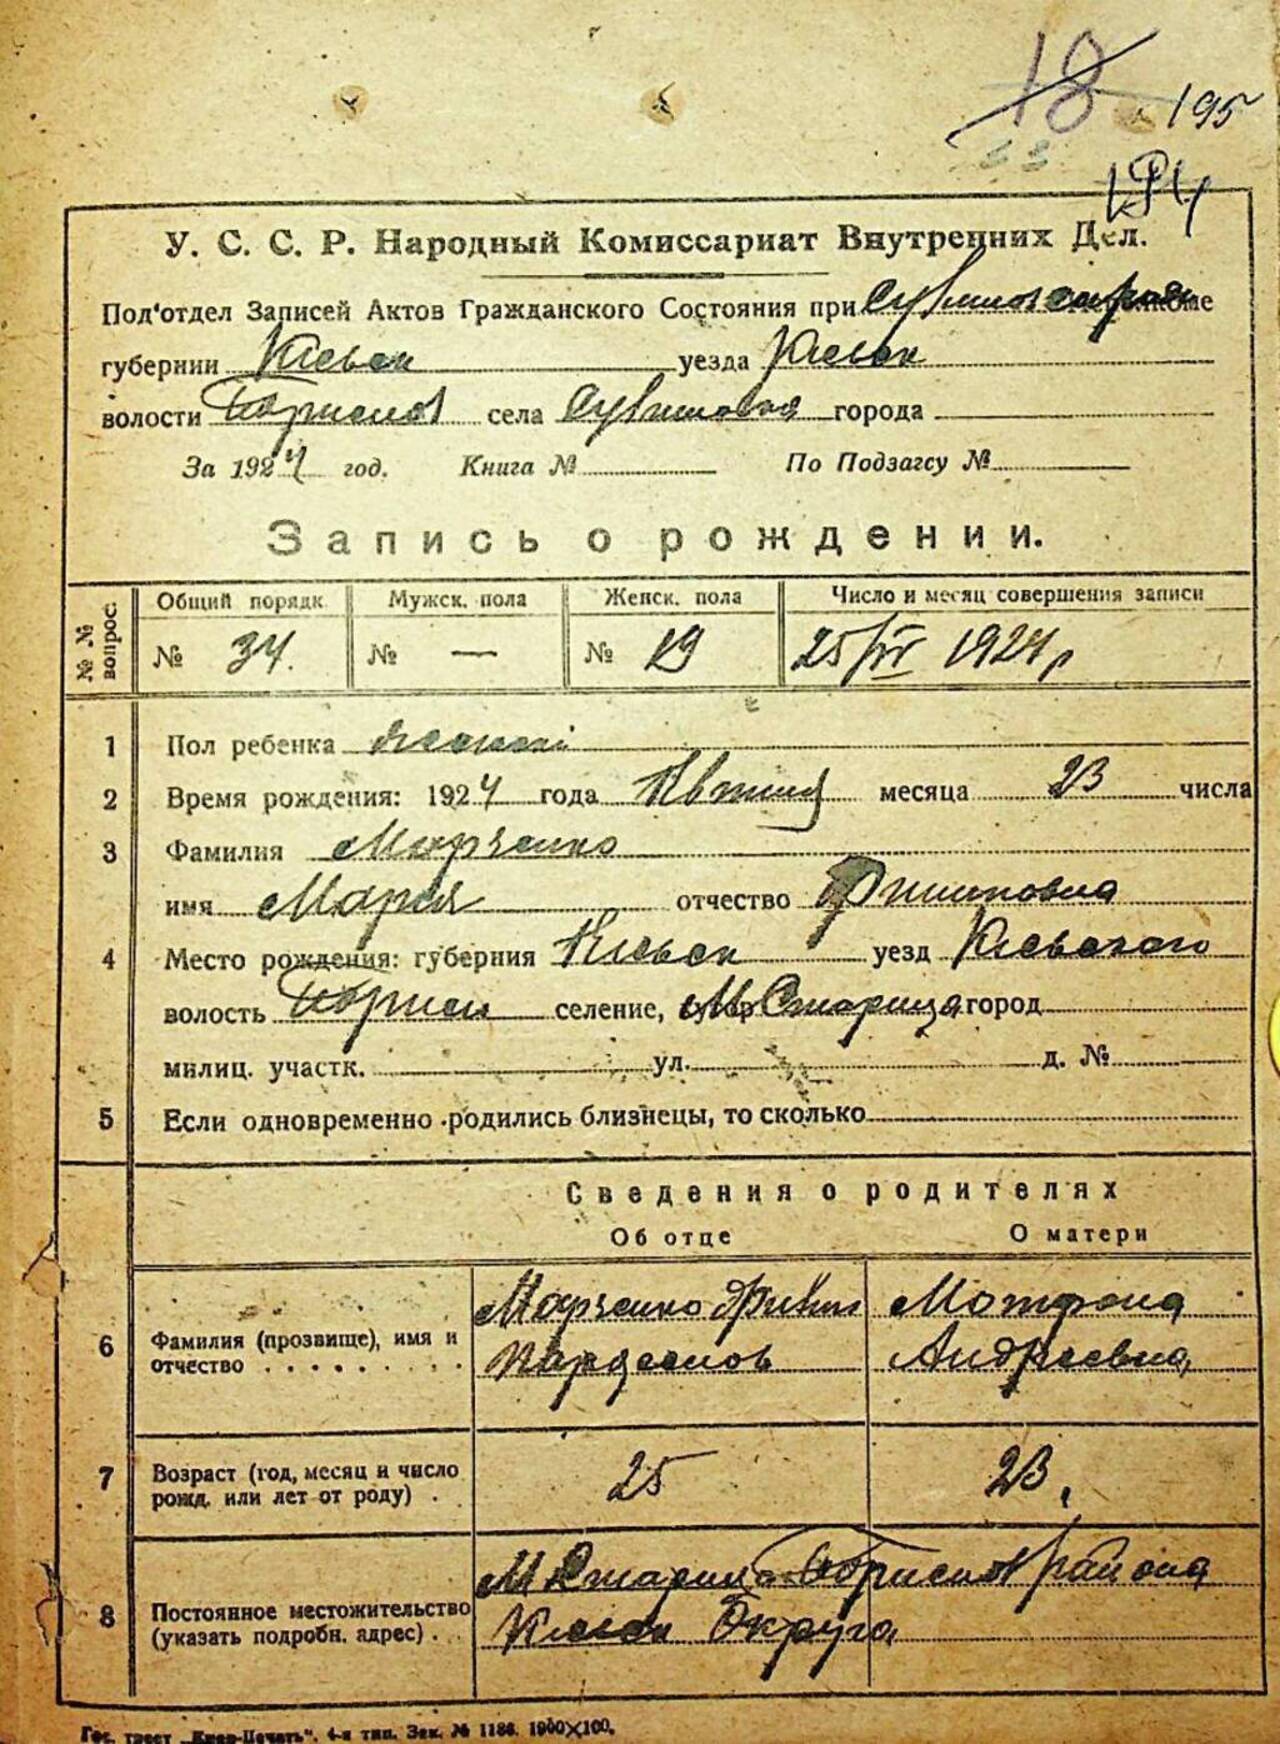 18 195
194
У. С. С. Р. Народный Комиссариат Внутренних Дел.
Под'отдел Записей Актов Гражданского Состояния при
губернии Киевск уезда Киевск
волости Борисп села города
За 1924 год. Книга № По Подзагсу №
Запись о рождении.
№ № вопрос. Общий порядк Мужск. пола Женск. пола Число и месяц совершения записи
№ 34. № — № 19 25/IV 1924 р
1 Пол ребенка
2 Время рождения: 1924 года Квітня месяца 23 числа
3 Фамилия Марченко
имя Мария отчество Филиповна
4 Место рождения: губерния Киевск уезд Киевского
волость Борисп селение, М Старица город
милиц. участк. ул. д. №
5 Если одновременно родились близнецы, то сколько
Сведения о родителях
Об отце О матери
6 Фамилия (прозвище), имя и отчество Марченко Филип Матрона
Андреевна
7 Возраст (год, месяц и число рожд. или лет от роду) 25 23
8 Постоянное местожительство (указать подробн. адрес) М Старица Борисп района
Киевск Округа
Гос. трест „Киев-Печать". 4-я тип. Зак. № 1186. 1900×100.